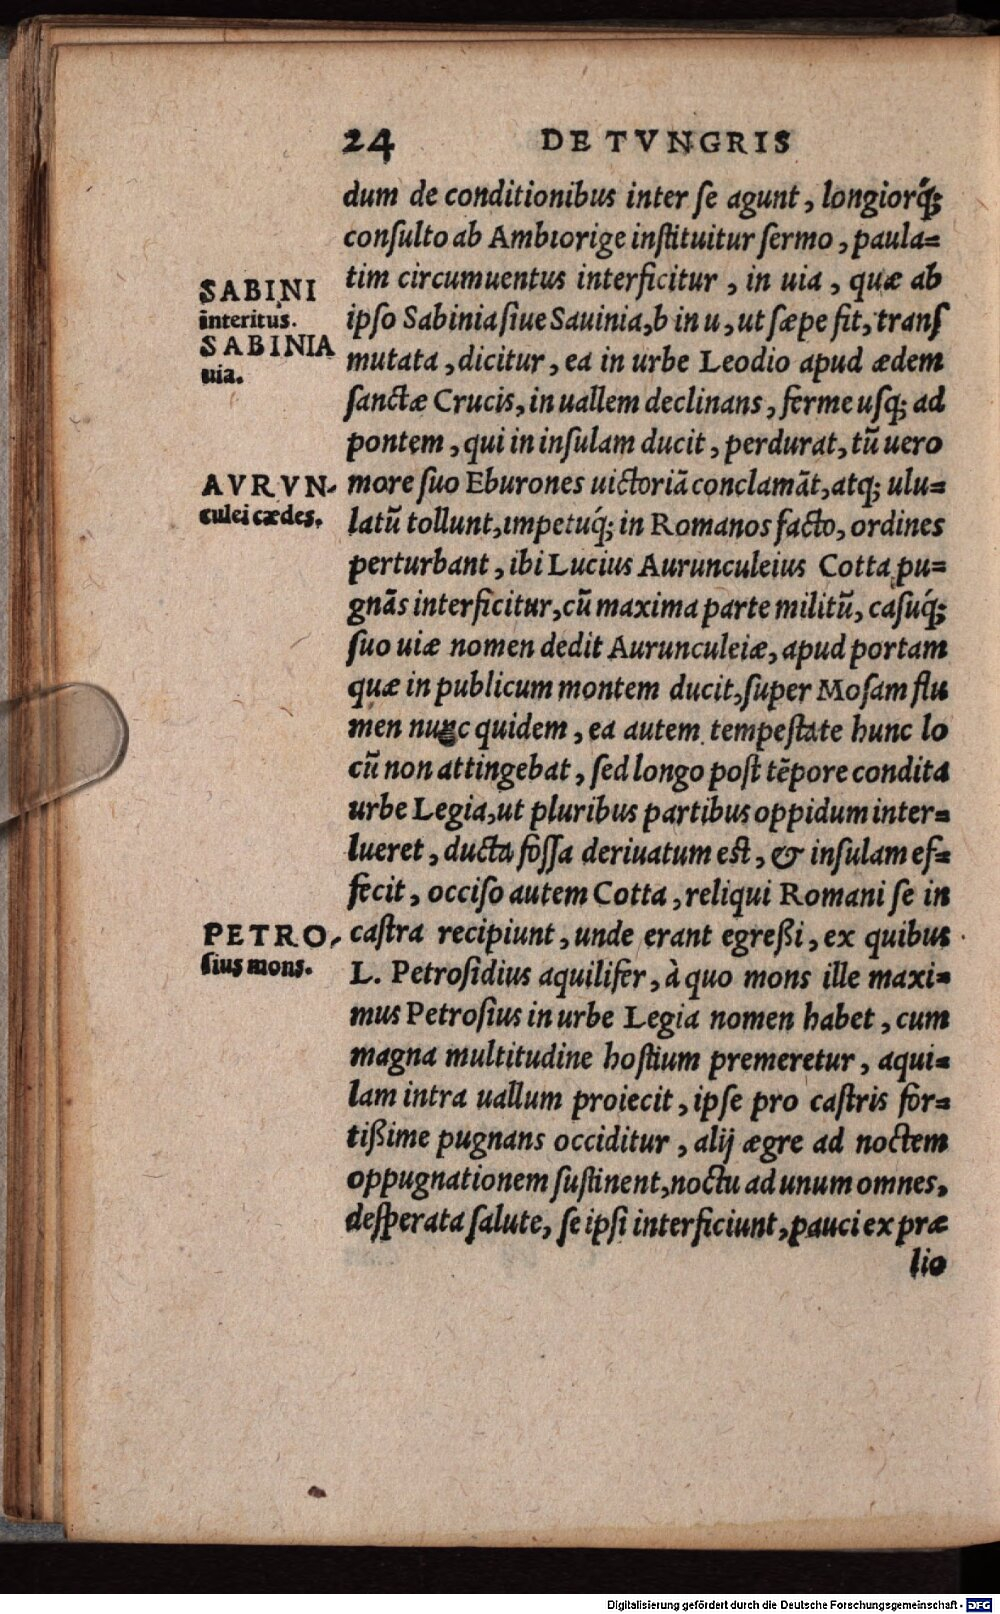 24 DE TVNGRIS
dum de conditionibus inter ſe agunt, longiorq́;
conſulto ab Ambiorige inſtituitur ſermo, paula=
tim circumuentus interficitur, in uia, quæ ab
SABINI
interitus.
ipſo Sabinia ſiue Sauinia, b in u, ut ſæpe fit, tranſ
SABINIA
uia.
mutata, dicitur, ea in urbe Leodio apud ædem
ſanctæ Crucis, in uallem declinans, ferme uſq; ad
pontem, qui in inſulam ducit, perdurat, tũ uero
AVRVN-
culei cædes.
more ſuo Eburones uictoriã conclamãt, atq; ulu=
latũ tollunt, impetuq́; in Romanos facto, ordines
perturbant, ibi Lucius Aurunculeius Cotta pu=
gnãs interficitur, cũ maxima parte militũ, caſuq́;
ſuo uiæ nomen dedit Aurunculeiæ, apud portam
quæ in publicum montem ducit, ſuper Moſam flu
men nunc quidem, ea autem tempeſtate hunc lo
cũ non attingebat, ſed longo poſt tẽpore condita
urbe Legia, ut pluribus partibus oppidum inter=
lueret, ducta foſſa deriuatum eſt, & inſulam ef=
fecit, occiſo autem Cotta, reliqui Romani ſe in
PETRO-
ſius mons.
caſtra recipiunt, unde erant egreßi, ex quibus
L. Petroſidius aquilifer, à quo mons ille maxi=
mus Petroſius in urbe Legia nomen habet, cum
magna multitudine hoſtium premeretur, aqui=
lam intra uallum proiecit, ipſe pro caſtris for=
tißime pugnans occiditur, alij ægre ad noctem
oppugnationem ſuſtinent, noctu ad unum omnes,
deſperata ſalute, ſe ipſi interficiunt, pauci ex præ
lio
Digitalisierung gefördert durch die Deutsche Forschungsgemeinschaft - DFG